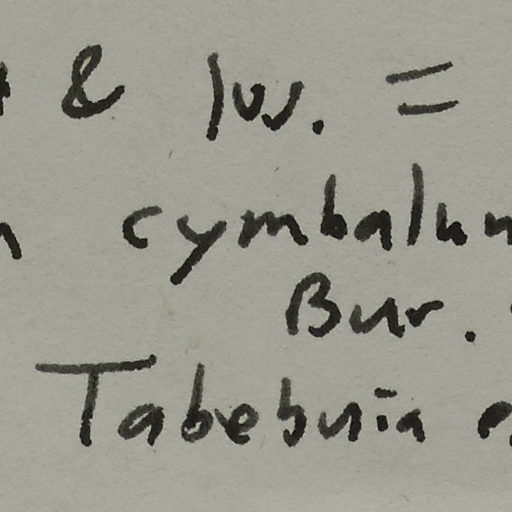 & Jus. =
cymbalum
Bur.
Tabebuia